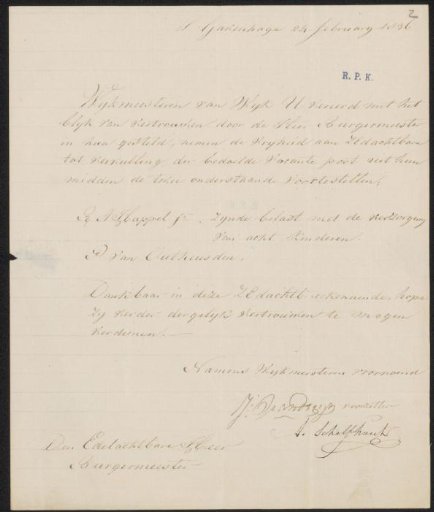 2
S Gravenhage 24 february 1886
R.P.K.
Wijkmeesteren van Wijk H vereerd met het
blijk van vertrouwen door de Heer Burgermeester
in hun gesteld, nemen de vryheid aan ZEdachtbare
tot vervulling der bedoelde vacante post uit hun
midden de twee onderstaande voortestellen,
zynde belast met de verzorging
van acht Kinderen
van
Dankbaar in deze ZEdachtb erkennende, hope
zy verder dergelyk vertrouwen te mogen
verdienen.
Namens Wykmeesteren voornoemd
voorzitter
Schelfhout
Den Edelachtbare Heer
Burgermeester